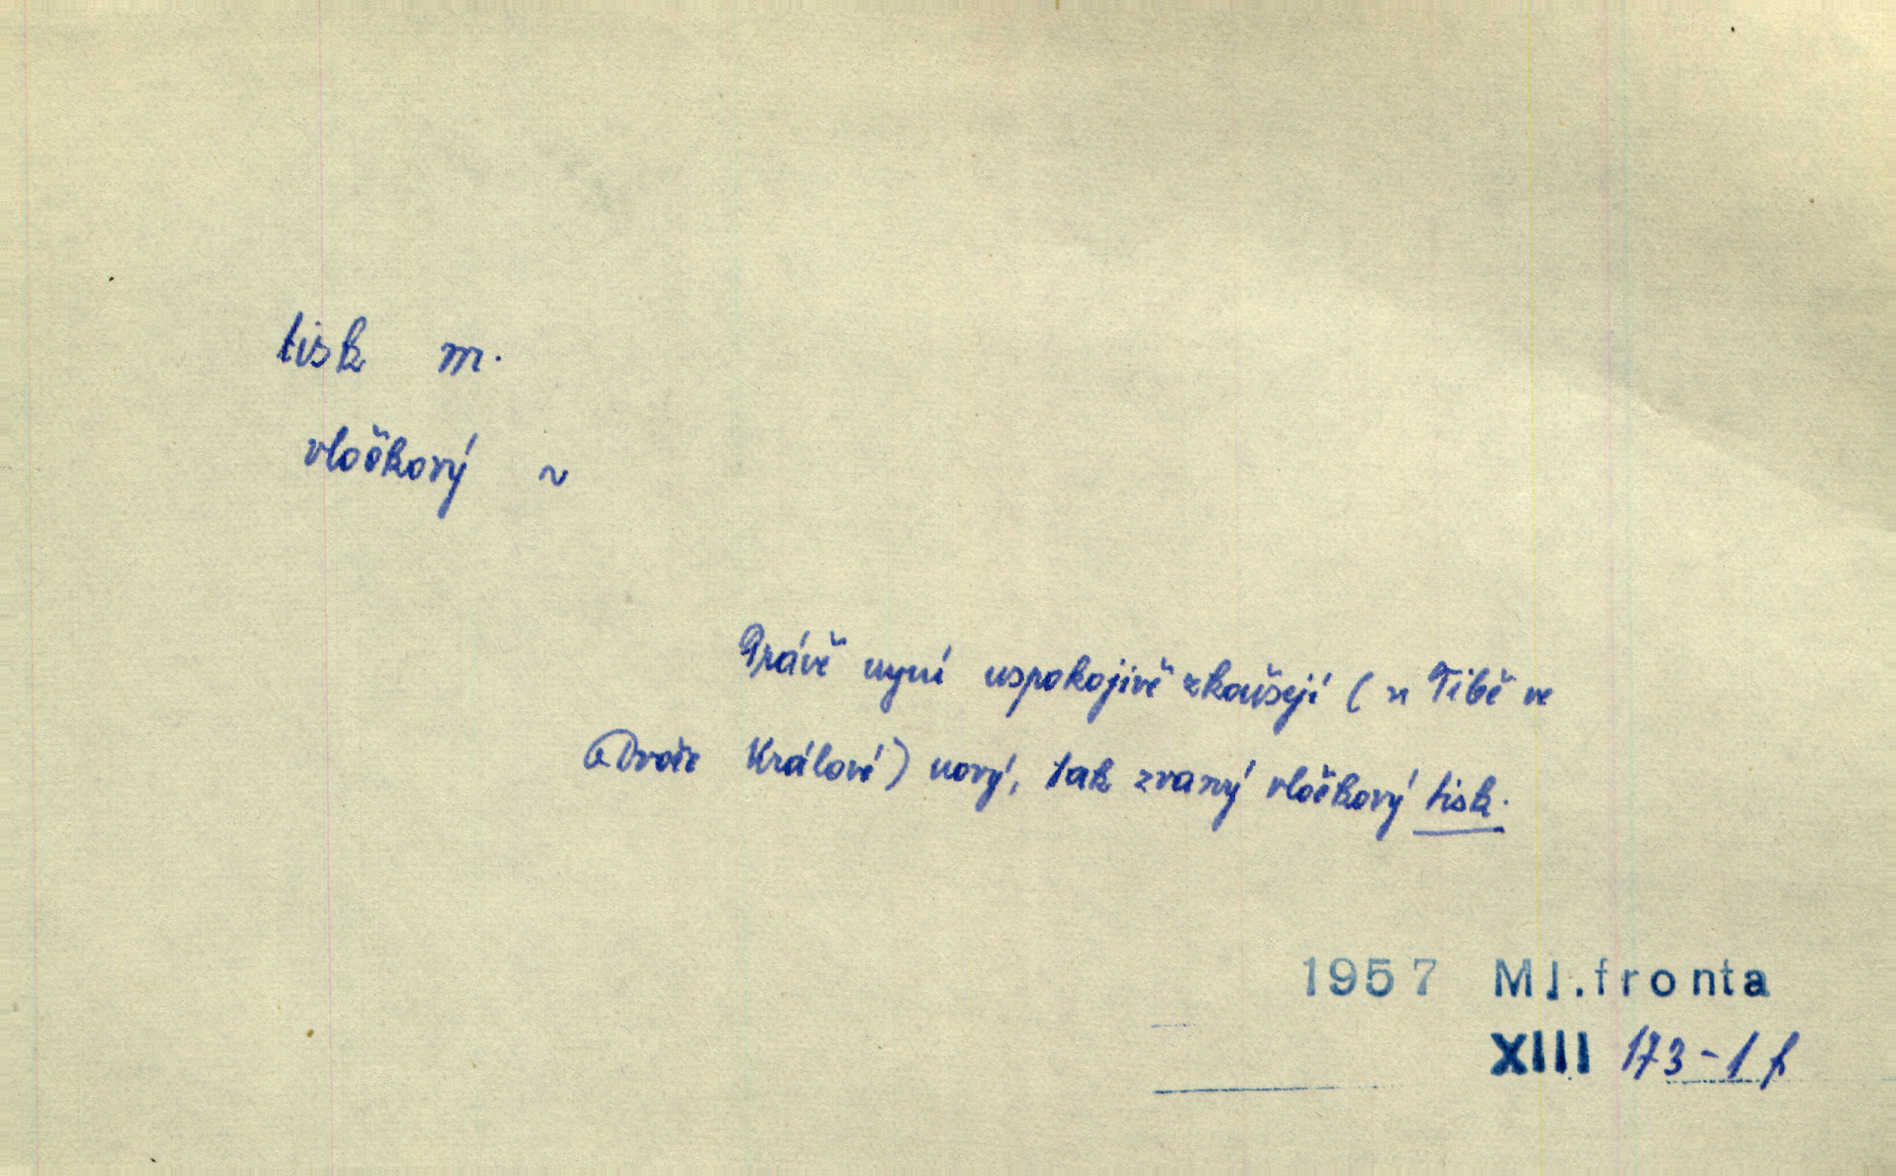 tisk m.
vločkový ~
Právě nyní uspokojivě zkoušejí (u Tibě ve
Dvoře Králové) nový, tak zvaný vločkový tisk.
1957 Ml.fronta
XIII 173-1f